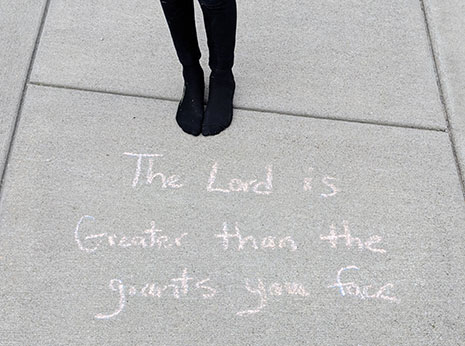 The Lord is
Greater than the
giants you face